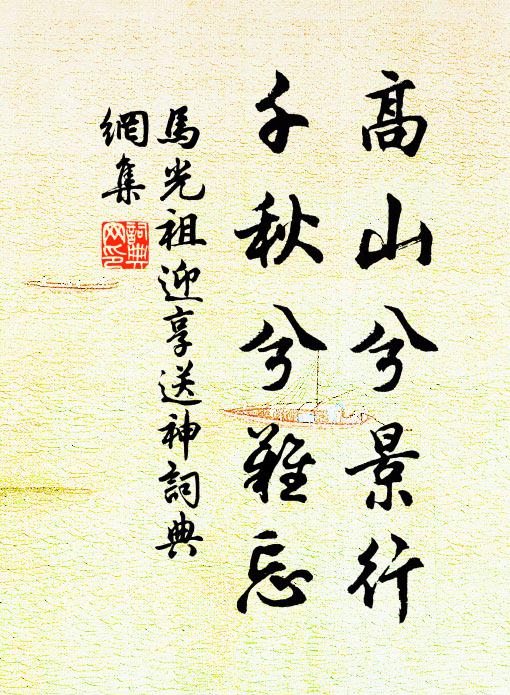 高山兮景行
千秋兮難忘
馬光祖迎享送神詞典
網集
詞典
网印